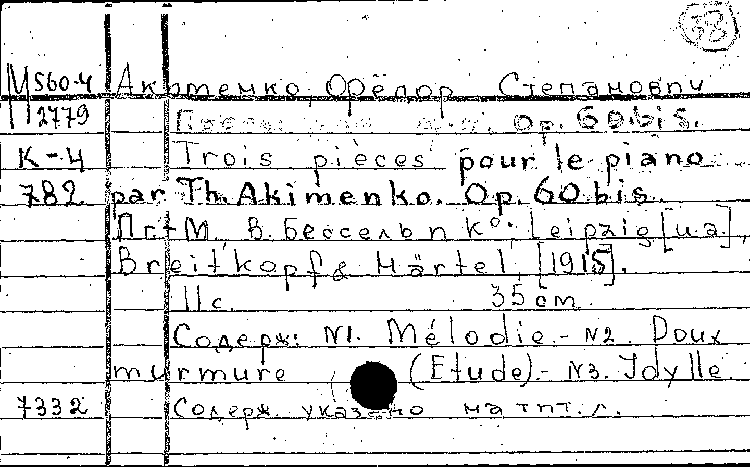 38
М560-4 Акименко, Фёдор Степанович
12779 Пьесы для ф.-п. Op. 60 bis.
К-4 Trois pièces pour le piano
782 par Th. Akimenko. Op. 60 bis.
Пг.-М., В. Бессель и К°; Leipzig [u.a.],
Breitkopf & Härtel, [1915].
11 с. 35 см.
Содерж: N1. Mélodie.- N2. Doux
murmure (Etude).- N3. Idylle
7332 Содерж. указано на тит. л.